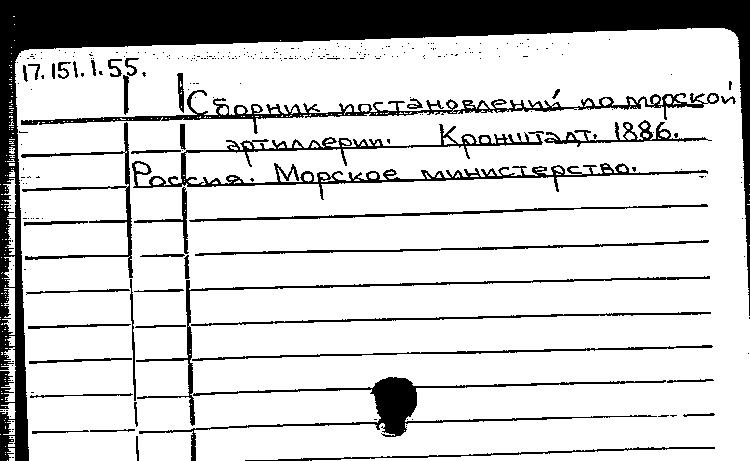 17.151.1.55.
Сборник постановлений по морской
артиллерии. Кронштадт. 1886.
Россия. Морское министерство.